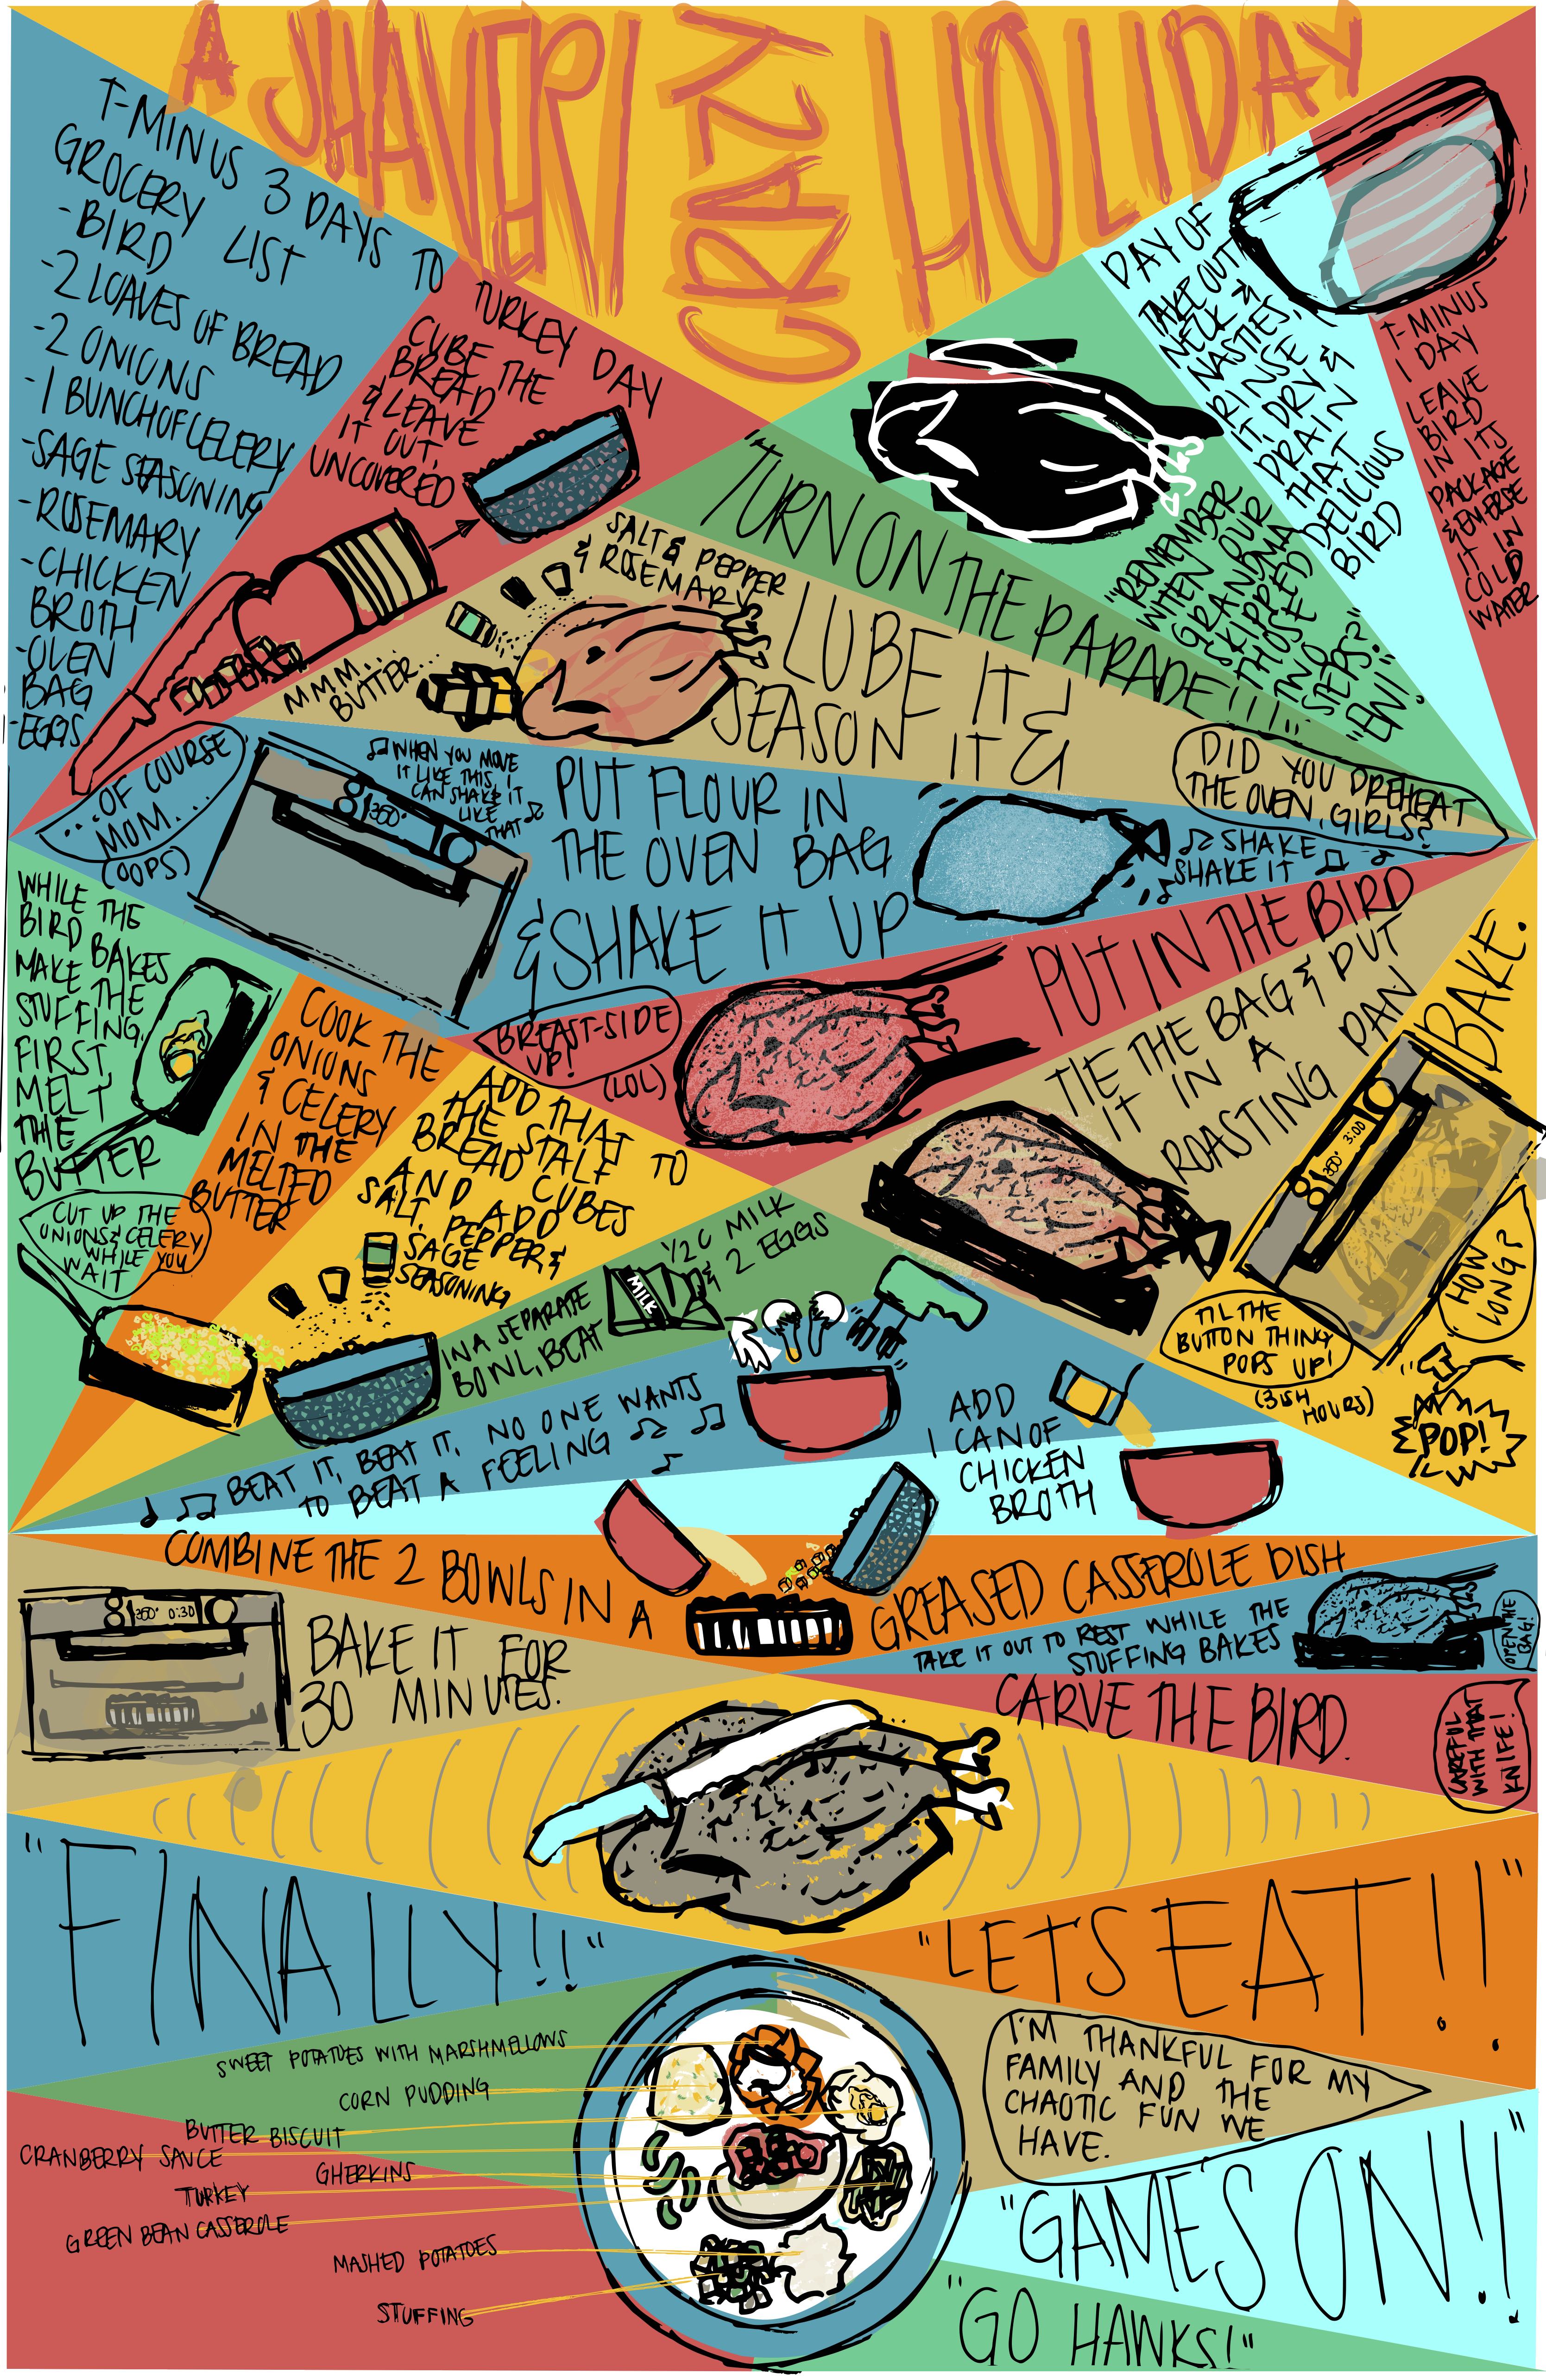 A JHAVERI CRAZY HOLIDAY
T-MINUS 3 DAYS TO TURKEY DAY
GROCERY LIST
-BIRD
-2 LOAVES OF BREAD
-2 ONIONS
-1 BUNCH OF CELERY
-SAGE SEASONING
-ROSEMARY
-CHICKEN
BROTH
-OVEN
BAG
-EGGS
CUBE THE
BREAD
& LEAVE
IT OUT,
UNCOVERED
T-MINUS
1 DAY
LEAVE
BIRD
IN ITS
PACKAGE
& EMERSE
IT IN
COLD
WATER
DAY OF
TAKE OUT
NECK &
NASTIES,
RINSE
IT, DRY &
DRAIN
THAT
DELICIOUS
BIRD
"REMEMBER
WHEN OUR
GRANDMA
SKIPPED
THOSE
TWO
STEPS?"
"EW!"
"TURN ON THE PARADE!!!"
SALT & PEPPER
& ROSEMARY
MMM...
BUTTER...
LUBE IT &
SEASON IT &
DID YOU PREHEAT
THE OVEN, GIRLS?
...OF COURSE
MOM...
(OOPS)
350°
♫ WHEN YOU MOVE
IT LIKE THIS, I
CAN SHAKE IT
LIKE
THAT ♫
PUT FLOUR IN
THE OVEN BAG
& SHAKE IT UP
♫ SHAKE
SHAKE IT ♫
PUT IN THE BIRD
BREAST-SIDE
UP!
(LOL)
TIE THE BAG & PUT
IT IN A
ROASTING PAN
BAKE.
350° 3:00
HOW
LONG?
TIL THE
BUTTON THINGY
POPS UP!
(3ISH
HOURS)
POP!
WHILE THE
BIRD BAKES
MAKE THE
STUFFING,
FIRST
MELT
THE
BUTTER
CUT UP THE
ONIONS & CELERY
WHILE YOU
WAIT
COOK THE
ONIONS
& CELERY
IN THE
MELTED
BUTTER
ADD THAT TO
THE STALE
BREAD CUBES
AND ADD
SALT, PEPPER &
SAGE
SEASONING
IN A SEPARATE
BOWL, BEAT
1/2 C MILK
& 2 EGGS
MILK
♪ ♫ BEAT IT, BEAT IT, NO ONE WANTS
TO BEAT A FEELING ♫ ♫
ADD
1 CAN OF
CHICKEN
BROTH
COMBINE THE 2 BOWLS IN A GREASED CASSEROLE DISH
350° 0:30
BAKE IT FOR
30 MINUTES.
TAKE IT OUT TO REST WHILE THE
STUFFING BAKES
OPEN THE
BAG!
CARVE THE BIRD.
CAREFUL
WITH THAT
KNIFE!
"FINALLY!!"
"LET'S EAT!!"
SWEET POTATOES WITH MARSHMELLOWS
CORN PUDDING
BUTTER BISCUIT
CRANBERRY SAUCE
GHERKINS
TURKEY
GREEN BEAN CASSEROLE
MASHED POTATOES
STUFFING
I'M THANKFUL FOR MY
FAMILY AND THE
CHAOTIC FUN WE
HAVE.
"GAMES ON!!"
"GO HAWKS!"